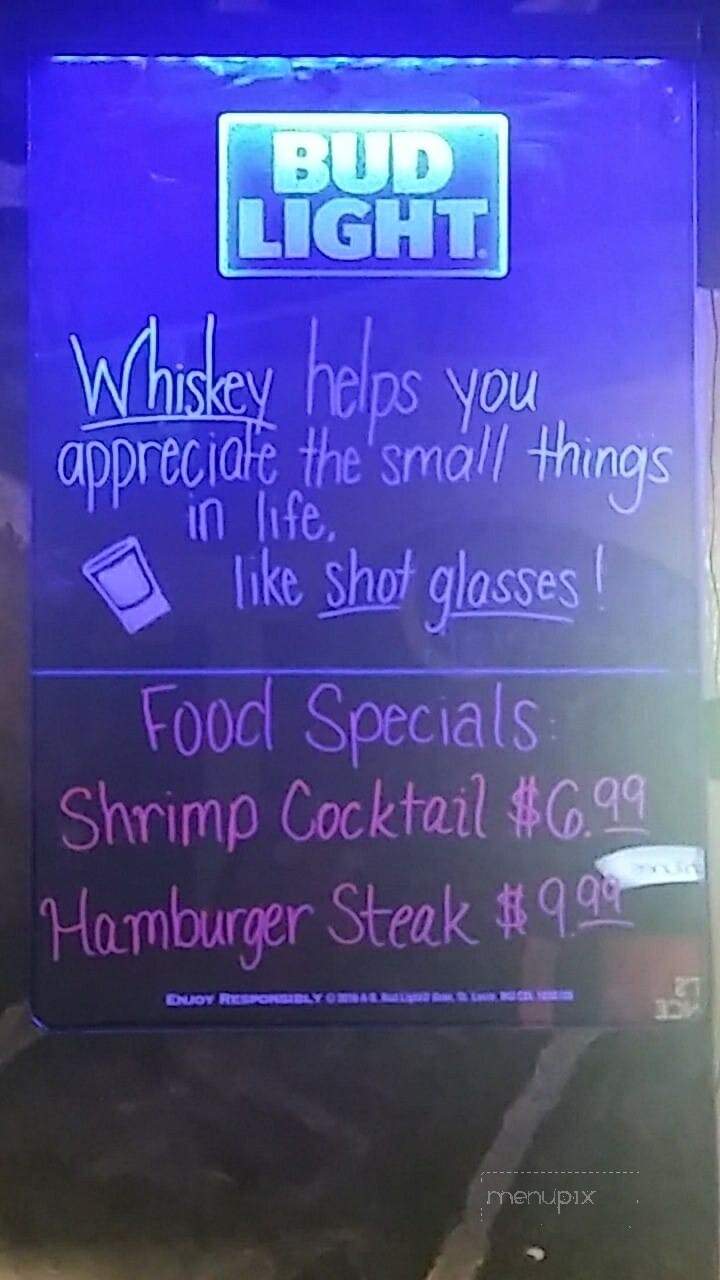 BUD
LIGHT
Whiskey helps you
appreciate the small things
in life,
like shot glasses!
Food Specials:
Shrimp Cocktail $6.99
Hamburger Steak $9.99
ENJOY RESPONSIBLY
menupix